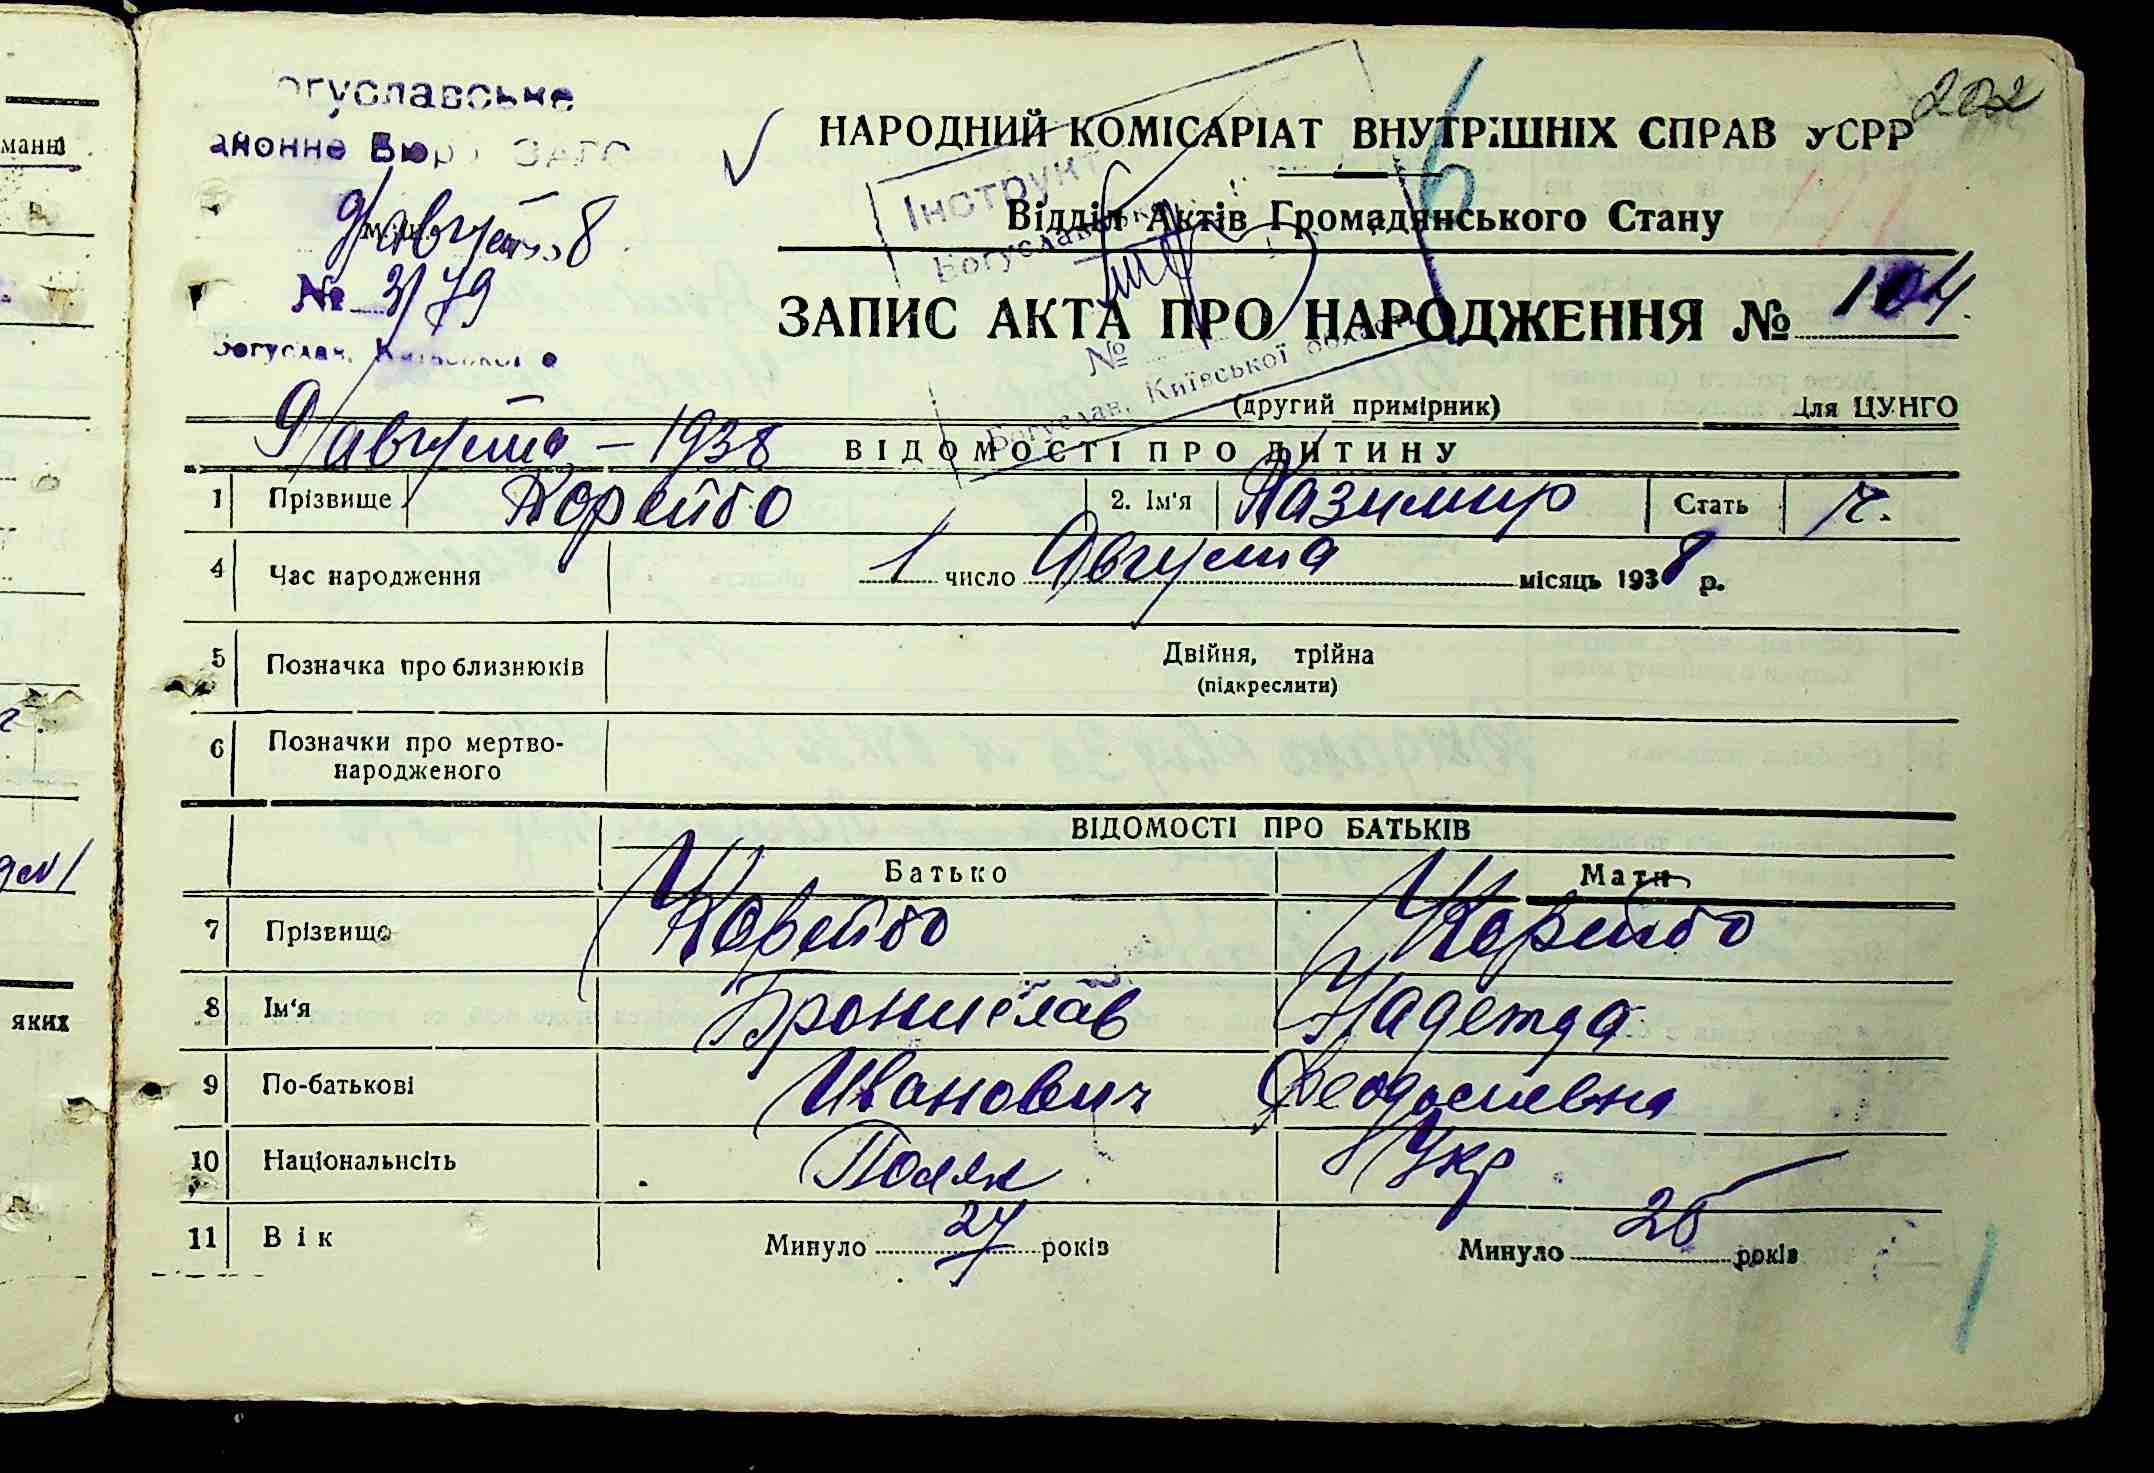 202
огуславське
айонне Бюро ЗАГС
НАРОДНИЙ КОМІСАРІАТ ВНУТРІШНІХ СПРАВ УСРР
Інструкт
Відділ Актів Громадянського Стану
9/августа 8
№ 3/79
Богуслав, Київської о
ЗАПИС АКТА ПРО НАРОДЖЕННЯ № 104
№
Богуслав, Київської області
(другий примірник) Для ЦУНГО
9/августа - 1938
ВІДОМОСТІ ПРО ДИТИНУ
1 Прізвище Корейбо 2. Ім'я Казимир Стать ч.
4 Час народження 1 число Августа місяць 1938 р.
5 Позначка про близнюків Двійня, трійна
(підкреслити)
6 Позначки про мертво-
народженого
ВІДОМОСТІ ПРО БАТЬКІВ
Батько Мати
7 Прізвище Корейбо Корейбо
8 Ім'я Бронислав Надежда
9 По-батькові Иванович Феодосиевна
10 Національнсіть Поляк Укр
11 Вік Минуло 27 років Минуло років
манні
яких